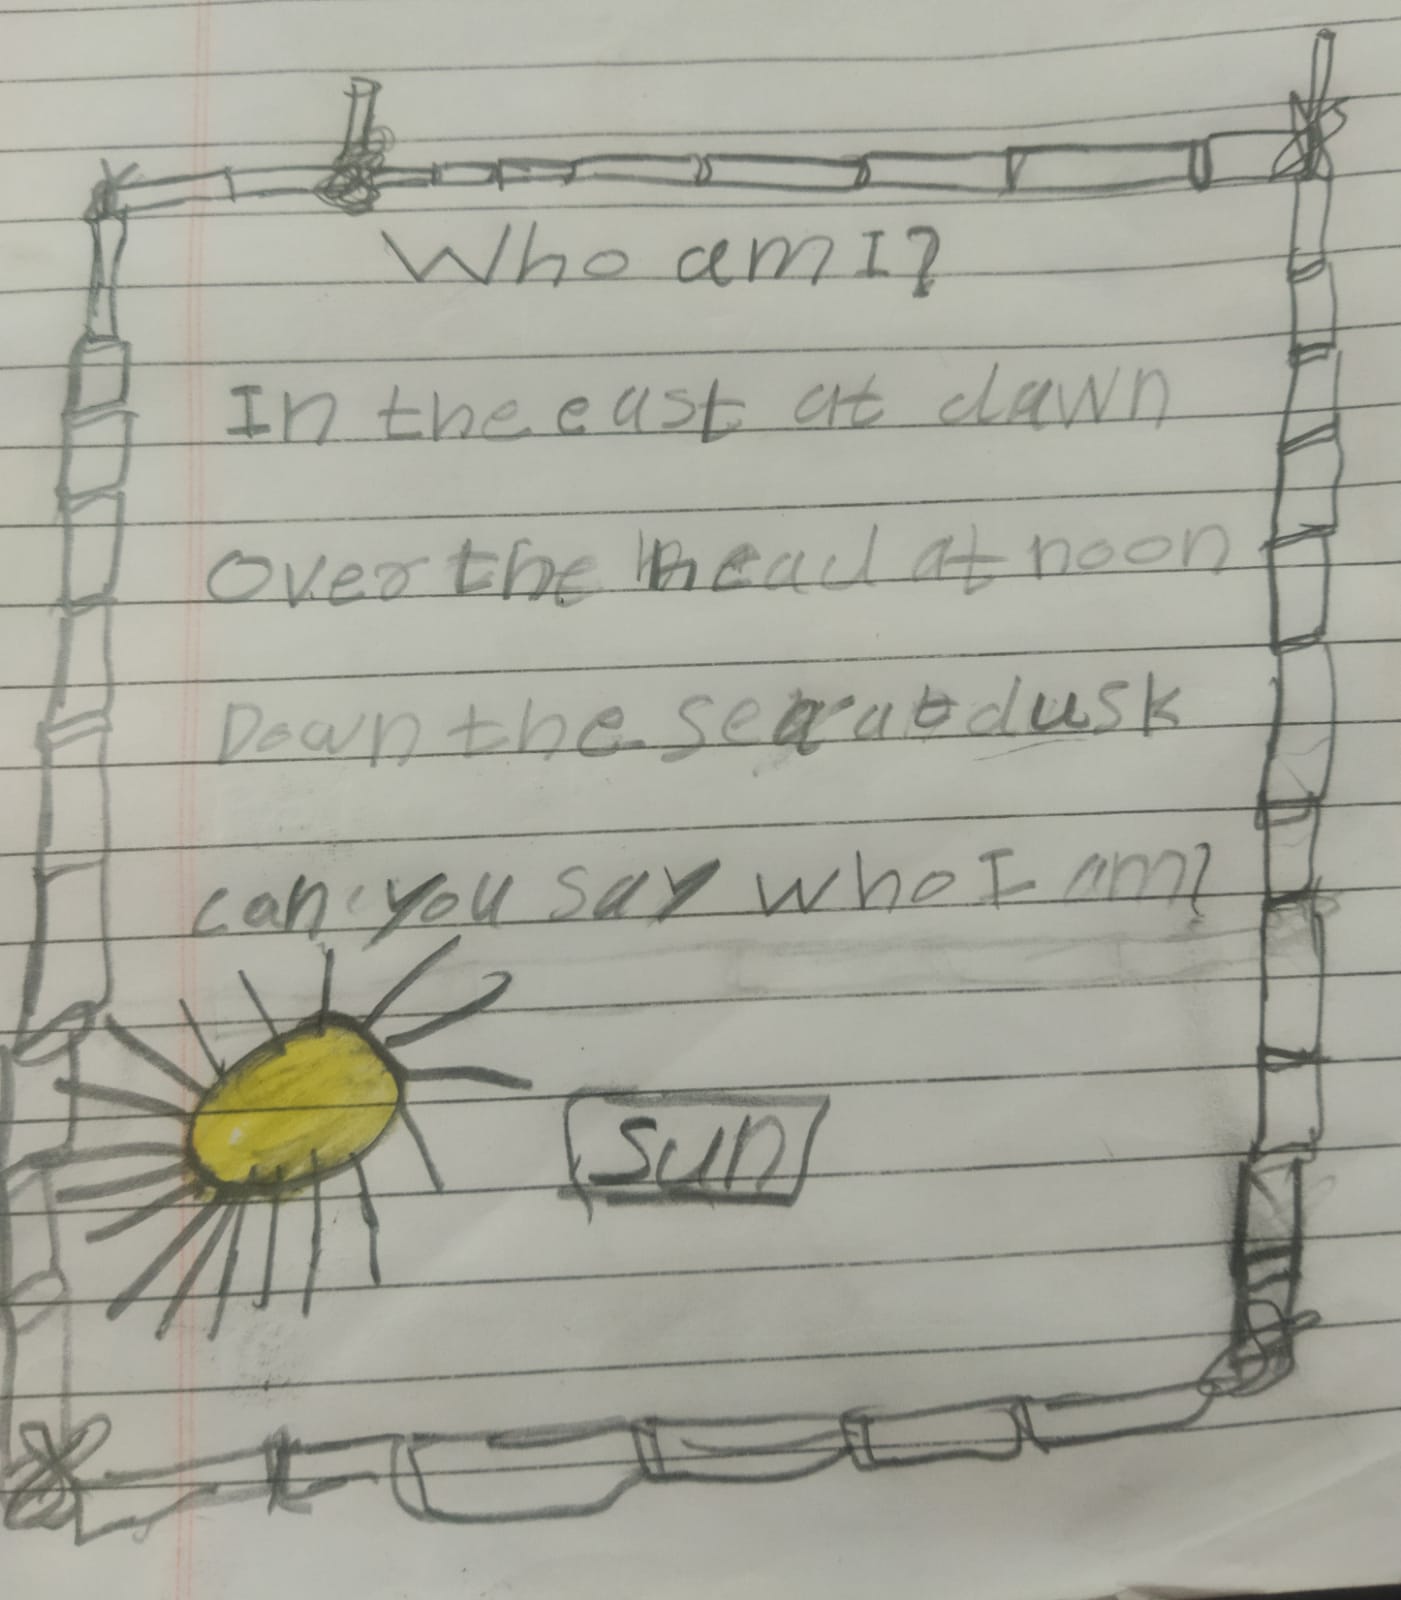 Who am I?
In the east at dawn
Over the head at noon
Down the sea at dusk
can you say who I am?
Sun